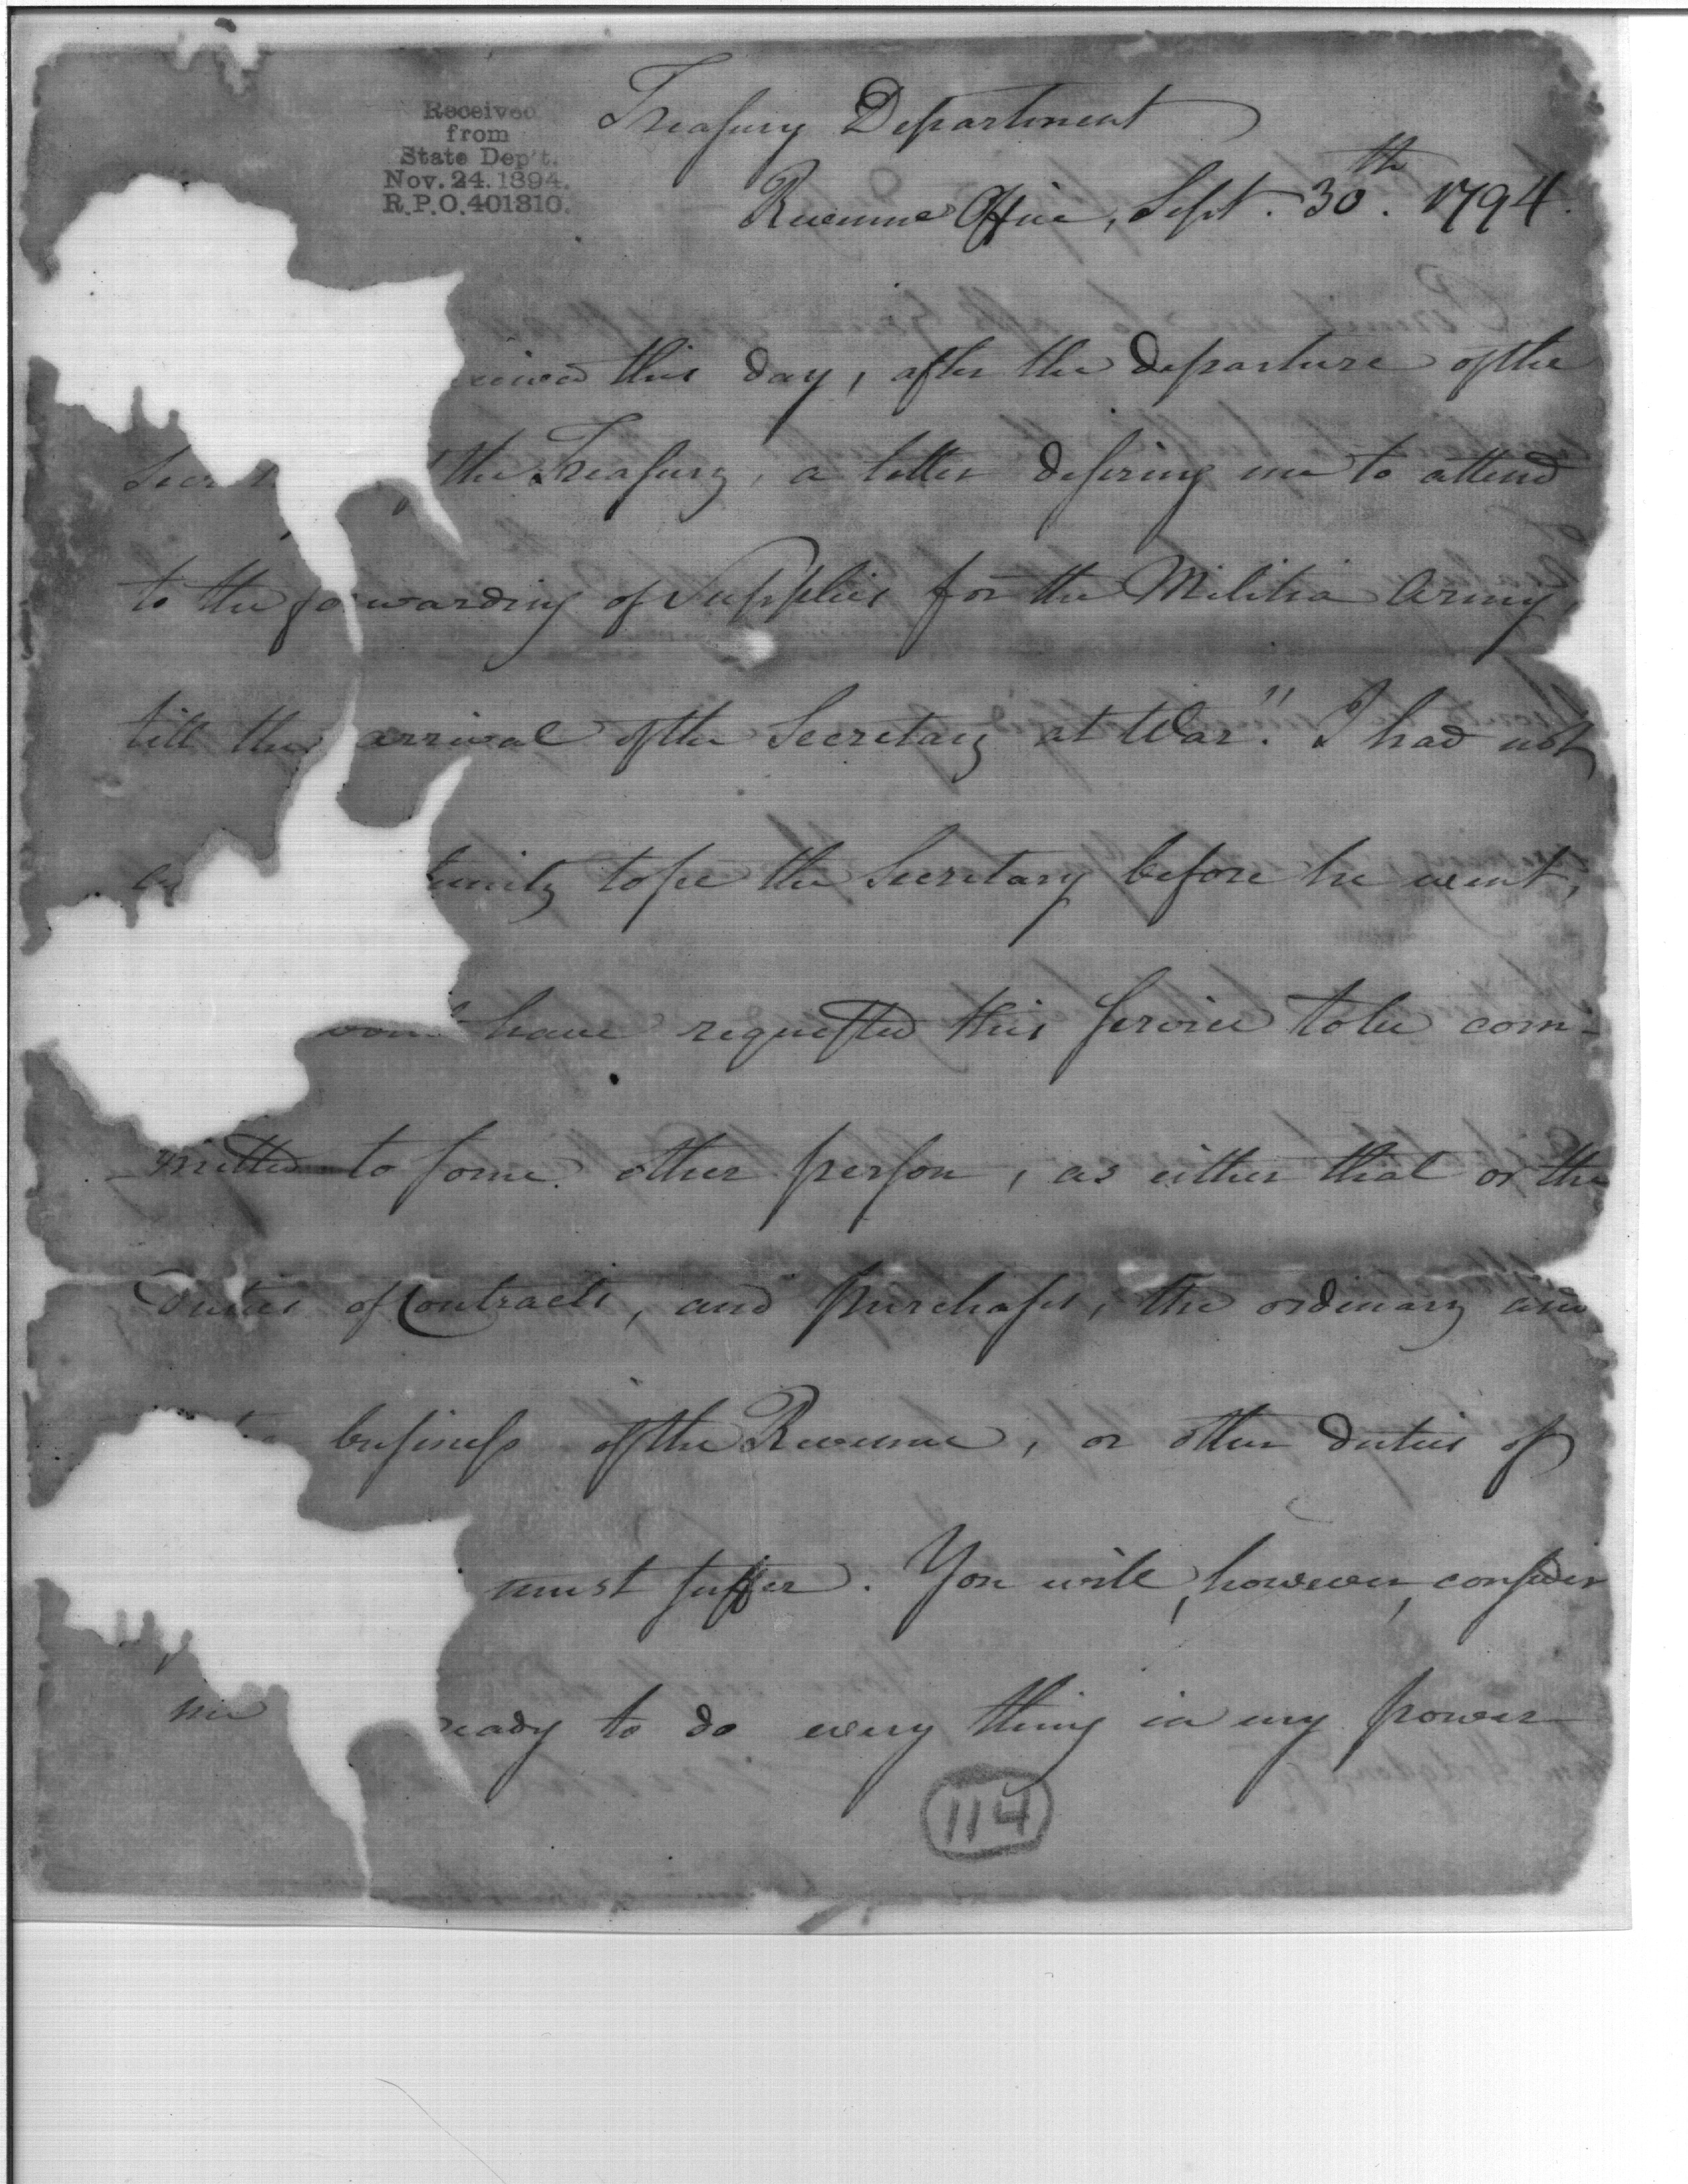 Received
from
State Dep't.
Nov. 24. 1894.
R.P.O. 401310.
Treasury Department
Revenue Office, Sept. 30th. 1794.
this day, after the departure of the
the Treasury, a letter desiring me to attend
to the forwarding of Supplies for the Militia Army,
till the arrival of the Secretary at War." I had not
to see the Secretary before he went,
have requested this service to be com-
-mitted to some other person, as either that or the
Duties of Contracts, and purchases, the ordinary and
business of the Revenue, or other duties of
must suffer. You will, however, consider
me ready to do every thing in my power
114